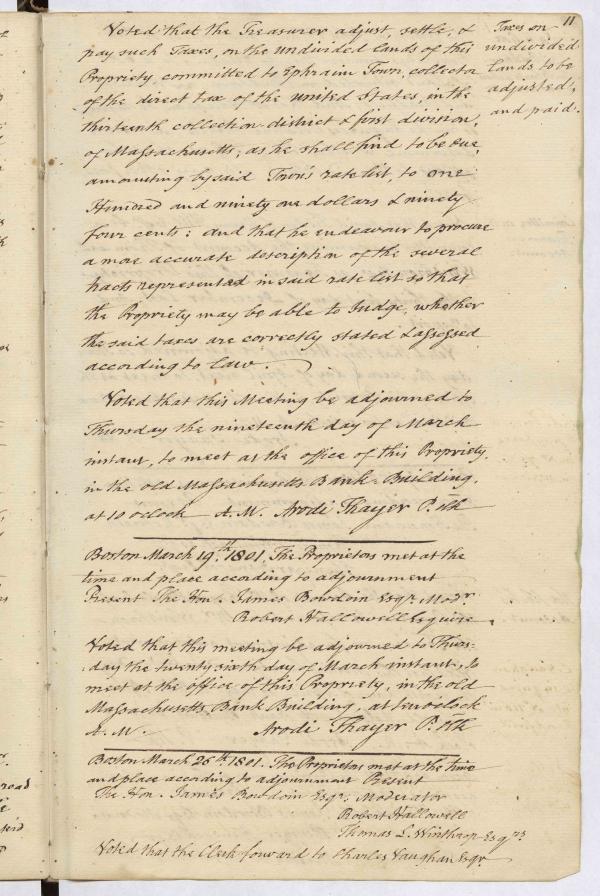 11
Voted that the Treasurer adjust, settle, &
pay such Taxes, on the undivided lands of this
Propriety, committed to Ephraim Town, collector
of the direct tax of the united States, in the
thirteenth collection district & first division,
of Massachusetts, as he shall find to be due,
amounting by said Town's rate list, to one
Hundred and ninety one dollars & ninety
four cents: and that he endeavour to procure
a more accurate description of the several
tracts represented in said rate list so that
the Propriety may be able to Judge, whether
the said taxes are correctly stated & assessed
according to law.
Taxes on
undivided
lands to be
adjusted,
and paid.
Voted that this Meeting be adjourned to
Thursday the nineteenth day of March
instant, to meet at the office of this Propriety,
in the old Massachusetts Bank-Building,
at 10 oClock A.M. Arodi Thayer P. Clk
Boston March 19th. 1801. The Proprietors met at the
time and place according to adjournment
Present The Hon. James Bowdoin Esqr. Modr.
Robert Hallowell Esquire.
Voted that this meeting be adjourned to Thurs-
day the twenty sixth day of March instant, to
meet at the office of this Propriety, in the old
Massachusetts Bank Building, at ten oClock
A. M. Arodi Thayer P. Clk
Boston March 26th. 1801. The Proprietors met at the time
and place according to adjournment Present
The Hon. James Bowdoin Esqr. Moderator
Robert Hallowell
Thomas L. Winthrop Esqrs
Voted that the Clerk forward to Charles Vaughan Esqr.